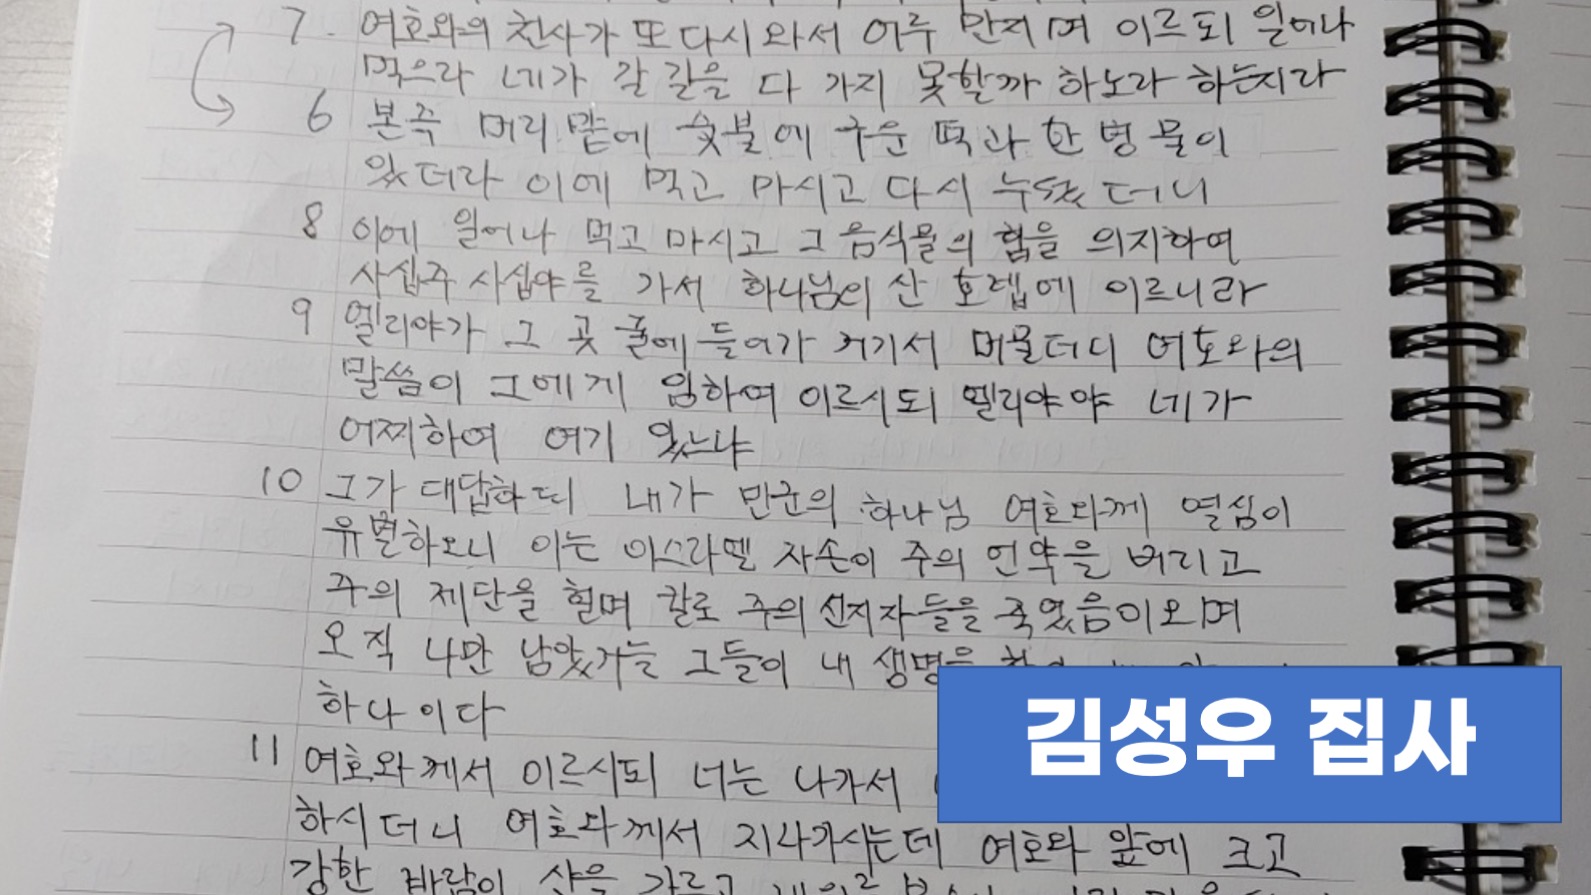 7. 여호와의 천사가 또 다시 와서 어루만지며 이르되 일어나
먹으라 네가 갈 길을 다 가지 못할까 하노라 하는지라
6 본즉 머리 맡에 숯불에 구운 떡과 한 병 물이
있더라 이에 먹고 마시고 다시 누웠더니
8 이에 일어나 먹고 마시고 그 음식물의 힘을 의지하여
사십주 사십야를 가서 하나님의 산 호렙에 이르니라
9 엘리야가 그 곳 굴에 들어가 거기서 머물더니 여호와의
말씀이 그에게 임하여 이르시되 엘리야야 네가
어찌하여 여기 있느냐
10 그가 대답하되 내가 만군의 하나님 여호와께 열심이
유별하오니 이는 이스라엘 자손이 주의 언약을 버리고
주의 제단을 헐며 칼로 주의 선지자들을 죽였음이오며
오직 나만 남았거늘 그들이 내 생명을
하나이다
11 여호와께서 이르시되 너는 나가서
하시더니 여호와께서 지나가시는데 여호와 앞에 크고
강한 바람이 산을 가르고
김성우 집사